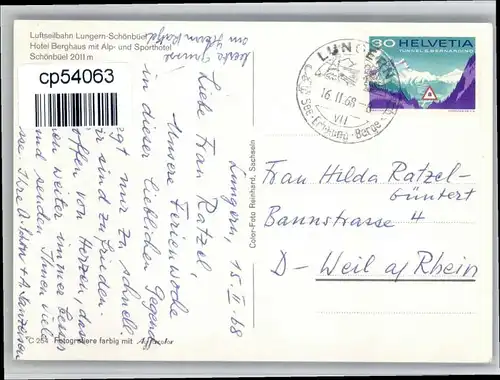 Luftseilbahn Lungern-Schönbüel
Hotel Berghaus mit Alp- und Sporthotel
Schönbüel 2011 m
cp54063
Lungern, 15. II. 68
Liebe Frau Ratzel,
Unsere Ferienwoche
in dieser lieblichen Gegend
egt nur zu schnell.
ir sind zufrieden.
offen von Herzen, das
nen weiter immer besser
und senden Ihnen viele
sse. Ihre
C 254 Fotografiere farbig mit Agfacolor
Color-Foto Reinhard, Sachseln
LUNGERN
16.II.68
VII
See · Berge
30 HELVETIA
TUNNEL S. BERNARDINO
Frau Hilda Ratzel-
Güntert
Bannstrasse 4
D- Weil a/Rhein